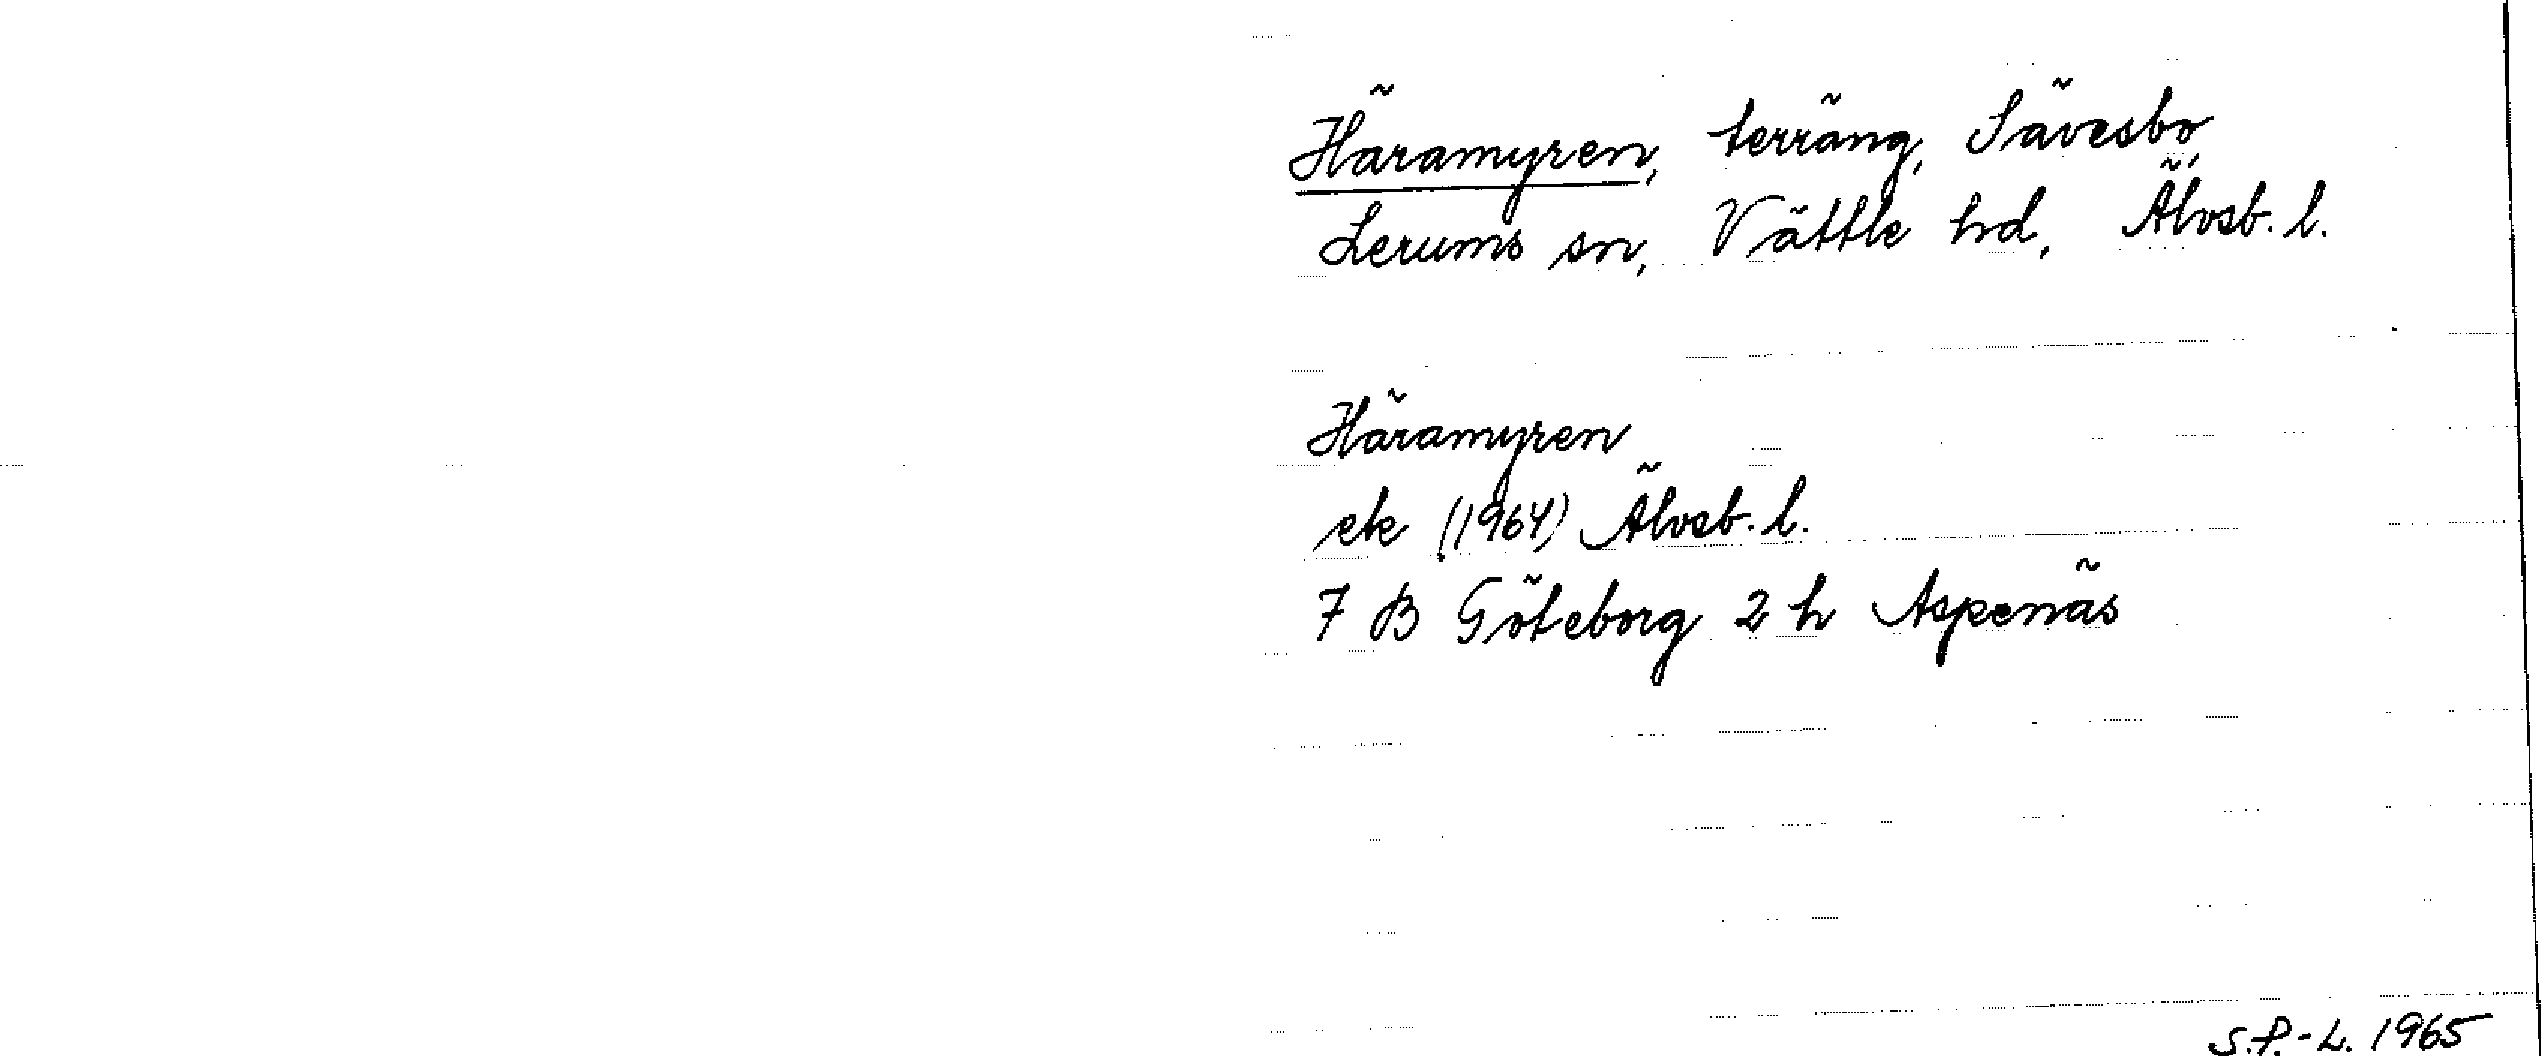 Häramyren, terräng, Sävesbo,
Lerums sn, Vättle hd, Älvsb. l.
Häramyren
ek (1964) Älvsb. l.
7 B Göteborg 2 h Aspenäs
S.P.-L. 1965